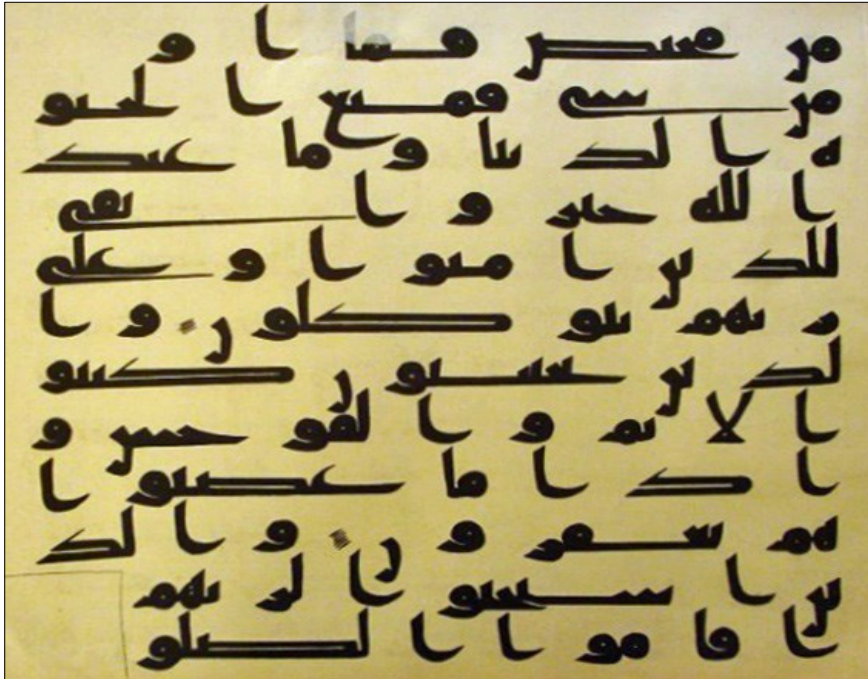 من محيص فما ا و
من شى فمتع ا لحيو
ة ا لد نيا و ما عند
ا لله خير و ا بقى
للذ ين ا منو ا و على
ر بهم يتو كلو ن و ا
لذ ين يجتنبو ن كبير
ا لا ثم و ا لفو حش و
ا ذ ا ما غضبو ا
هم يغفر و ن و ا لذ
ين ا ستجبو ا لر بهم
و ا قا مو ا ا لصلو